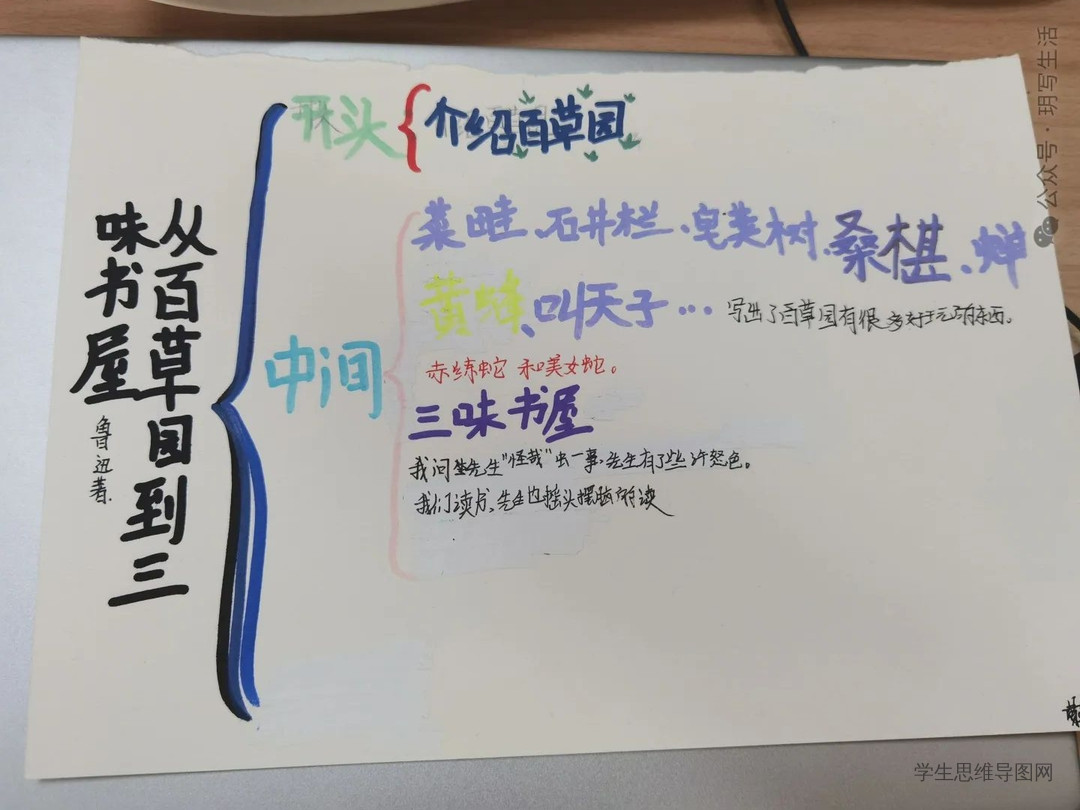 从百草园到三
味书屋
鲁迅著
开头
介绍百草园
中间
菜畦、石井栏、皂荚树、桑椹、蝉
黄蜂、叫天子…
写出了百草园有很多好玩的东西。
赤练蛇 和美女蛇。
三味书屋
我问先生"怪哉"虫一事,先生有了些许怒色。
我们读书、先生也摇头摆脑的读
公众号·玥写生活
学生思维导图网